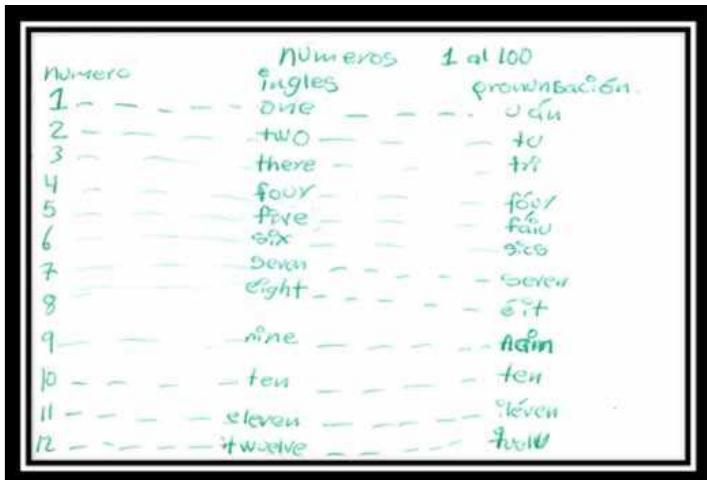 números 1 al 100
Número ingles pronunsación.
1 - - - - - one - - - - uán
2 - - - two - - - tu
3 - - there - - tri
4 - - - four - - - fóur
5 - - - five - - - fáiv
6 - - - six - - - sics
7 - - - seven - - - - - seven
8 eight - - - - - éit
9 - - - - nine - - - - - nain
10 - - - - ten - - - - - ten
11 - - - - - eleven - - - - - iléven
12 - - - - twelve - - - - -